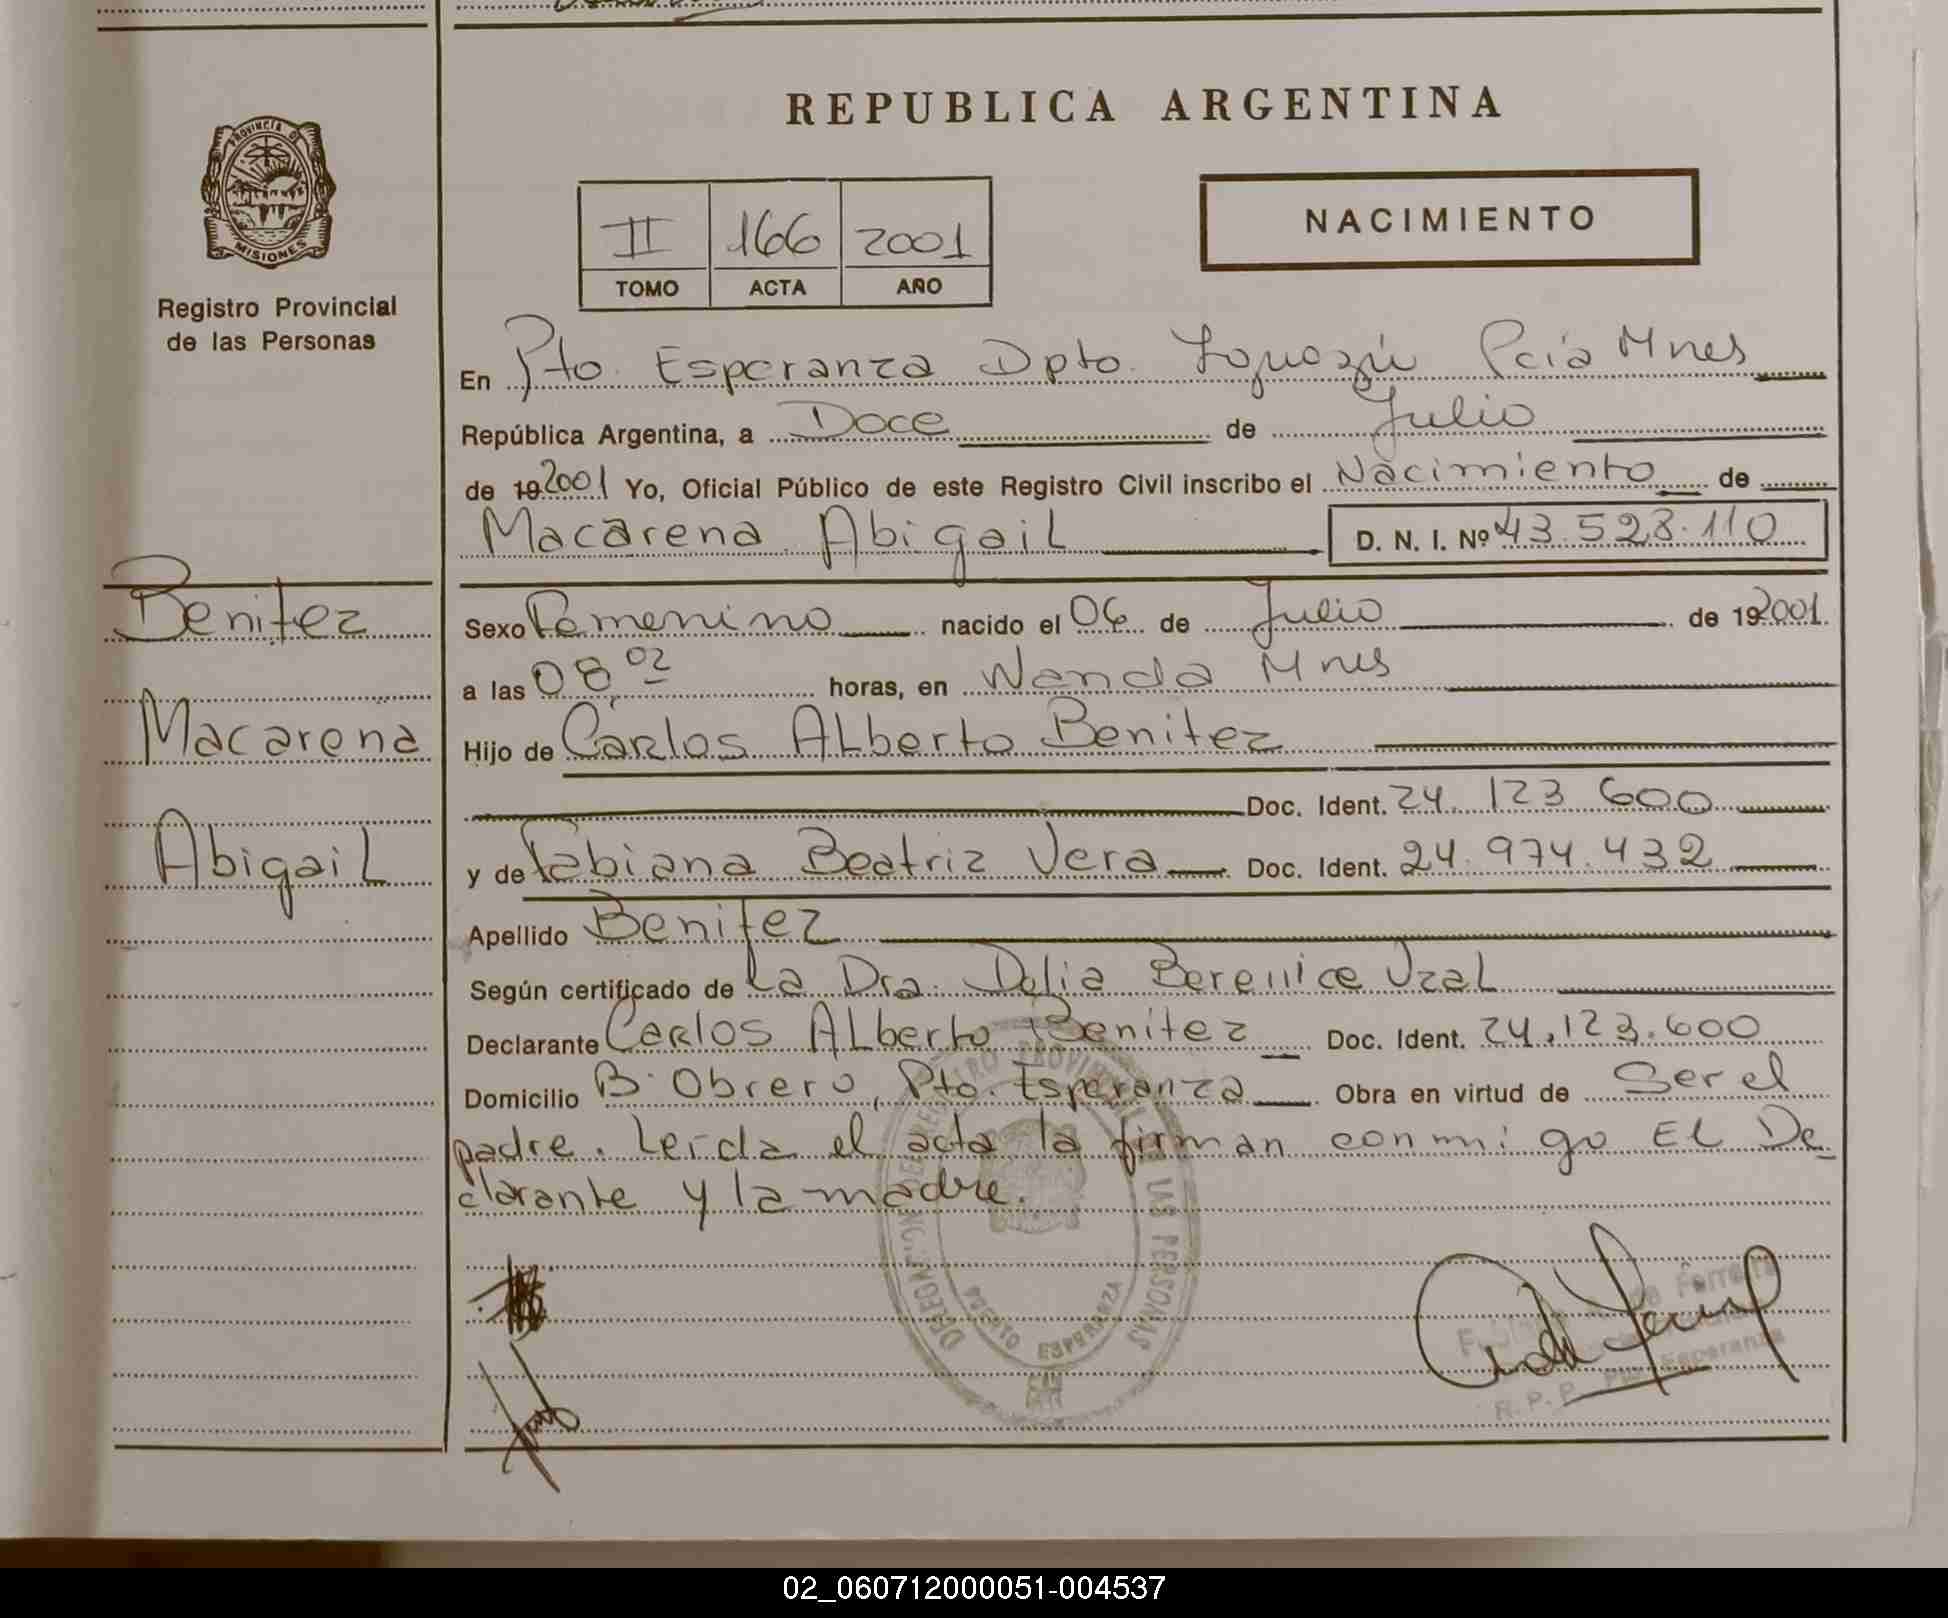 REPUBLICA ARGENTINA
PROVINCIA DE
MISIONES
Registro Provincial
de las Personas
II 166 2001
TOMO ACTA AÑO
NACIMIENTO
En Pto. Esperanza Dpto. Iguazú Pcia Mnes
República Argentina, a Doce de Julio
de 19 2001 Yo, Oficial Público de este Registro Civil inscribo el Nacimiento de
Macarena Abigail D. N. I. Nº 43.523.110
Benitez
Macarena
Abigail
Sexo Femenino nacido el 06 de Julio de 19 2001
a las 08,02 horas, en Wanda Mnes
Hijo de Carlos Alberto Benitez
Doc. Ident. 24.123.600
y de Fabiana Beatriz Vera Doc. Ident. 24.974.432
Apellido Benitez
Según certificado de La Dra. Delia Berenice Uzal
Declarante Carlos Alberto Benitez Doc. Ident. 24.123.600
Domicilio B. Obrero, Pto. Esperanza Obra en virtud de Ser el
padre. Leída el acta la firman conmigo El De
clarante y la madre.
DELEGACION DEL REGISTRO PROVINCIAL DE LAS PERSONAS
PUERTO ESPERANZA
Ferreira
R. P. P. Pto. Esperanza
02_060712000051-004537